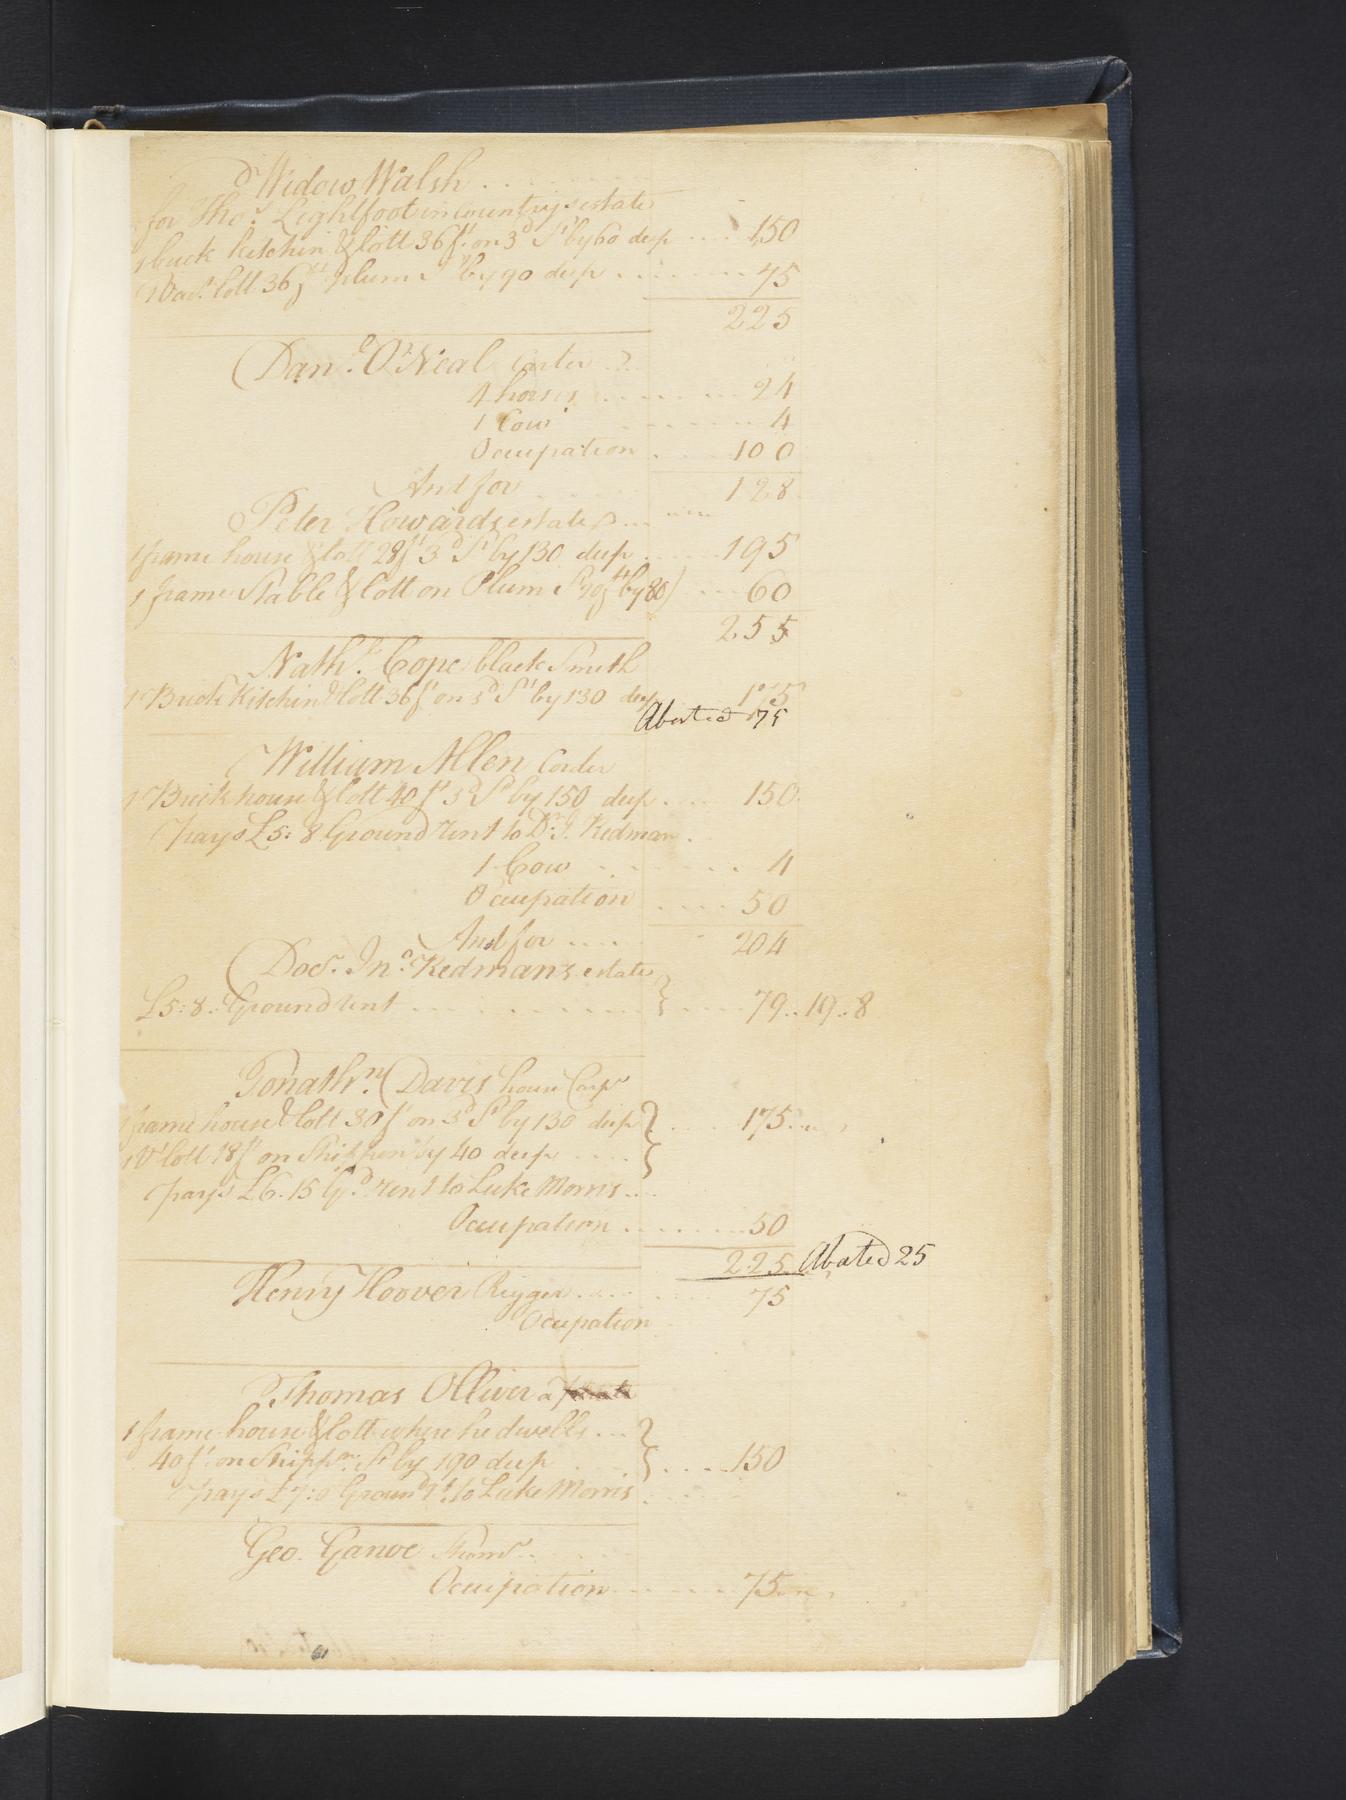 Widow Walsh
for Thos. Lightfoot in Country estate
1 brick kitchin & lott 36 ft. on 3d St. by 60 deep .... 150
1 Vact. lott 36 ft Plum St by 90 deep ....... 75
225
Danl. O'Neal Carter
4 horses ....... 24
1 Cow ....... 4
Occupation .... 100
And for ..... 128
Peter Howards estate ...
1 frame house & lott 28 ft 3d St by 130 deep .... 195
1 frame Stable & lott on Plum St 20 ft by 80 ... 60
255
Nathl. Cope black Smith
1 Brick Kitchin & lott 36 ft on 3d St by 130 deep 175
Abated 75
William Allen Corder
1 Brick house & lott 40 ft 3d St by 150 deep .... 150
pays £5: 8 Ground rent to Dr. J. Redman
1 Cow ....... 4
Occupation .... 50
And for .... 204
Docr. Jno. Redmans estate
£5: 8.. Ground rent ....... 79..19..8
Jonathn. Davis house Carpr
1 frame house & lott 30 ft on 3d St by 130 deep .... 175
1 Vt lott 18 ft on Shippen by 40 deep ....
pays £6.15 Gd. rent to Luke Morris ...
Occupation ....... 50
225 Abated 25
Henry Hoover Rigger ....... 75
Occupation
Thomas Olliver a
1 frame house & lott where he dwells ...
40 ft. on Shippn. St by 190 deep .... 150
pays £7:0 Ground rt. to Luke Morris
Geo. Ganoe
Occupation ....... 75
61